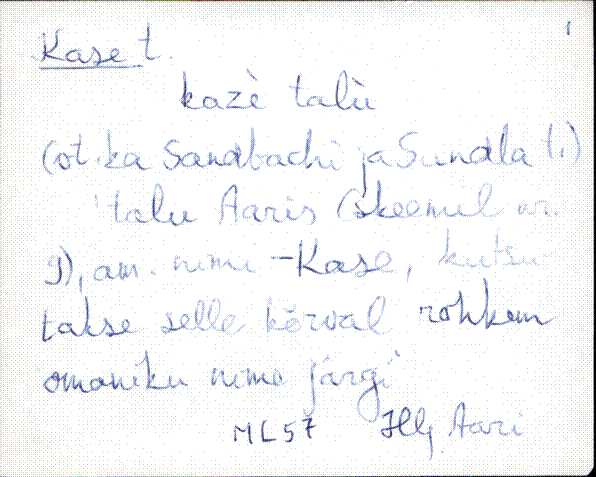 1
Kase t.
kazè talù
(ot. ka Sandbachi ja Sundla t.)
'talu Aaris (skeemil nr.
9), am. nimi - Kase, kutsu-
takse selle kõrval rohkem
omaniku nime järgi
ML57 Hlj Aari